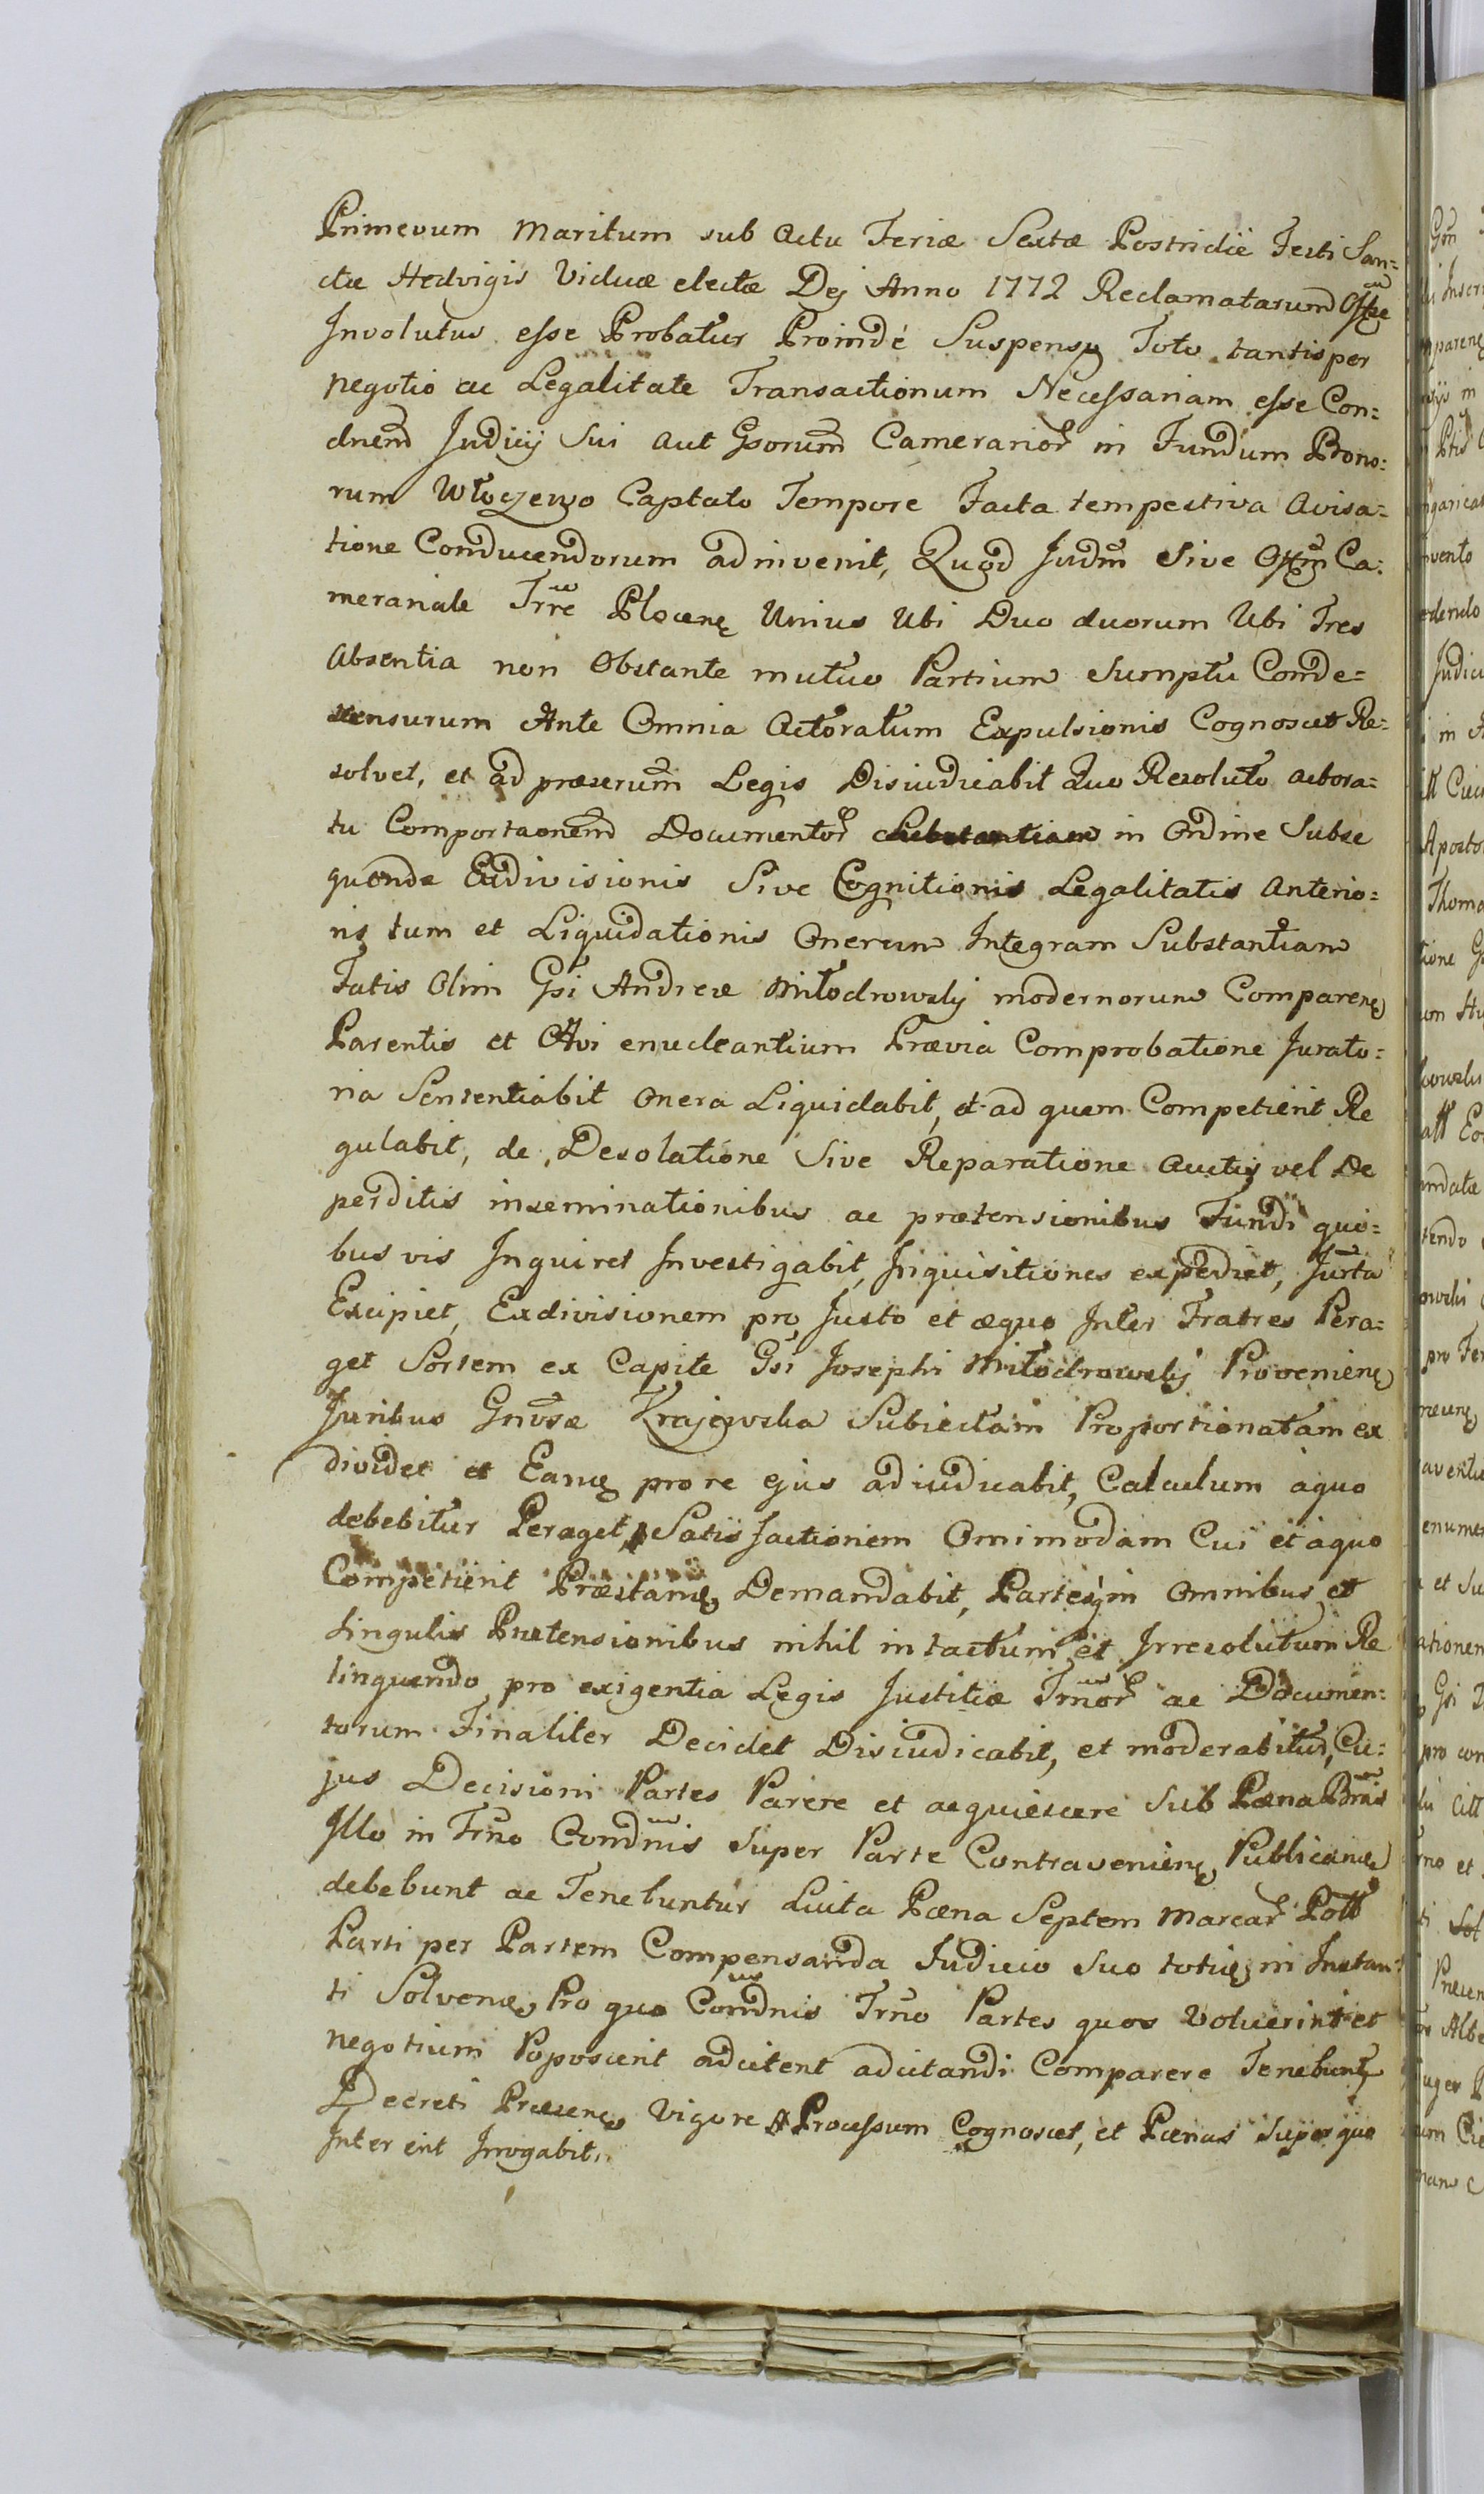 Primevum Maritum sub Actu Feriæ Sextæ Postridie Festi San=
ctæ Hedvigis Viduæ electæ Dej Anno 1772 Reclamatarum Offæ
Involutus esse Probatur Proindé Suspenso Toto tantisper
negotio ac Legalitate Transactionum Necessariam esse Con=
dnem Judicij Sui aut Gsorum Camerarior in Fundum Bono=
rum Włoczewo Captato Tempore Facta tempestiva Avisa=
tione Conducendorum adinvenit, Quod Judm Sive Offm Ca=
merariale Trre Plocens Unius Ubi Duo duorum Ubi Tres
Absentia non Obstante mutuo Partium Sumptu Conde=
scensurum Ante Omnia Actoratum Expulsionis Cognoscet Re=
solvet, et ad præscrum Legis Disiudicabit Quo Resoluto actora=
tu Comportaonem Documentor in Ordine Subse
quenda Exdivisionis Sive Cognitionis Legalitatis Anterio=
ris tum et Liquidationis Onerum Integram Substantiam
Fatis Olim Gsi Andreæ Miłodrowskj modernorum Comparen
Parentis et Avi enucleantium Prævia Comprobatione Jurato=
ria Sententiabit Onera Liquidabit, et ad quem Competierit Re
gulabit, de Desolatione Sive Reparatione Auctis vel De
perditis inseminationibus ac prætensionibus Fundi qui=
bus vis Inquiret Investigabit, Inquisitiones expediet, Jurta
Excipiet, Exdivisionem pro Justo et æquo Inter Fratres Pera=
get Sortem ex Capite Gsi Josephi Miłodrowskj Provenien
Juribus Gnosæ Krajewska Subiectam Proportionatam ex
dividet et Eamq pro re ejus adiudicabit, Calculum aquo
debebitur Peraget, Satis factionem Omimodam Cui et aquo
Competierit Præstam Demandabit, Partesq in Omnibus et
Singulis Prætensionibus nihil intactum et Irresolutum Re
linquendo pro exigentia Legis Justitiæ Trnor ac Documen=
torum Finaliter Decidet Disiudicabit, et moderabitur, Cu=
jus Decisioni Partes Parere et acquiescere Sub Pæna Bnis
Illo in Trno Condnis Super Parte Contravenien Publicand
debebunt ac Tenebuntur Luita Pæna Septem Marcar Poll
Parti per Partem Compensanda Judicio Suo totieq in Instan=
ti Solvend, Pro quo Condnis Trno Partes quos Voluerint et
negotium Poposcerit adcitent adcitandi Comparere Tenebunt
Decreti Præsens Vigore Processum Cognoscet, et Pænas Super quo
Inter erit Irrogabit.